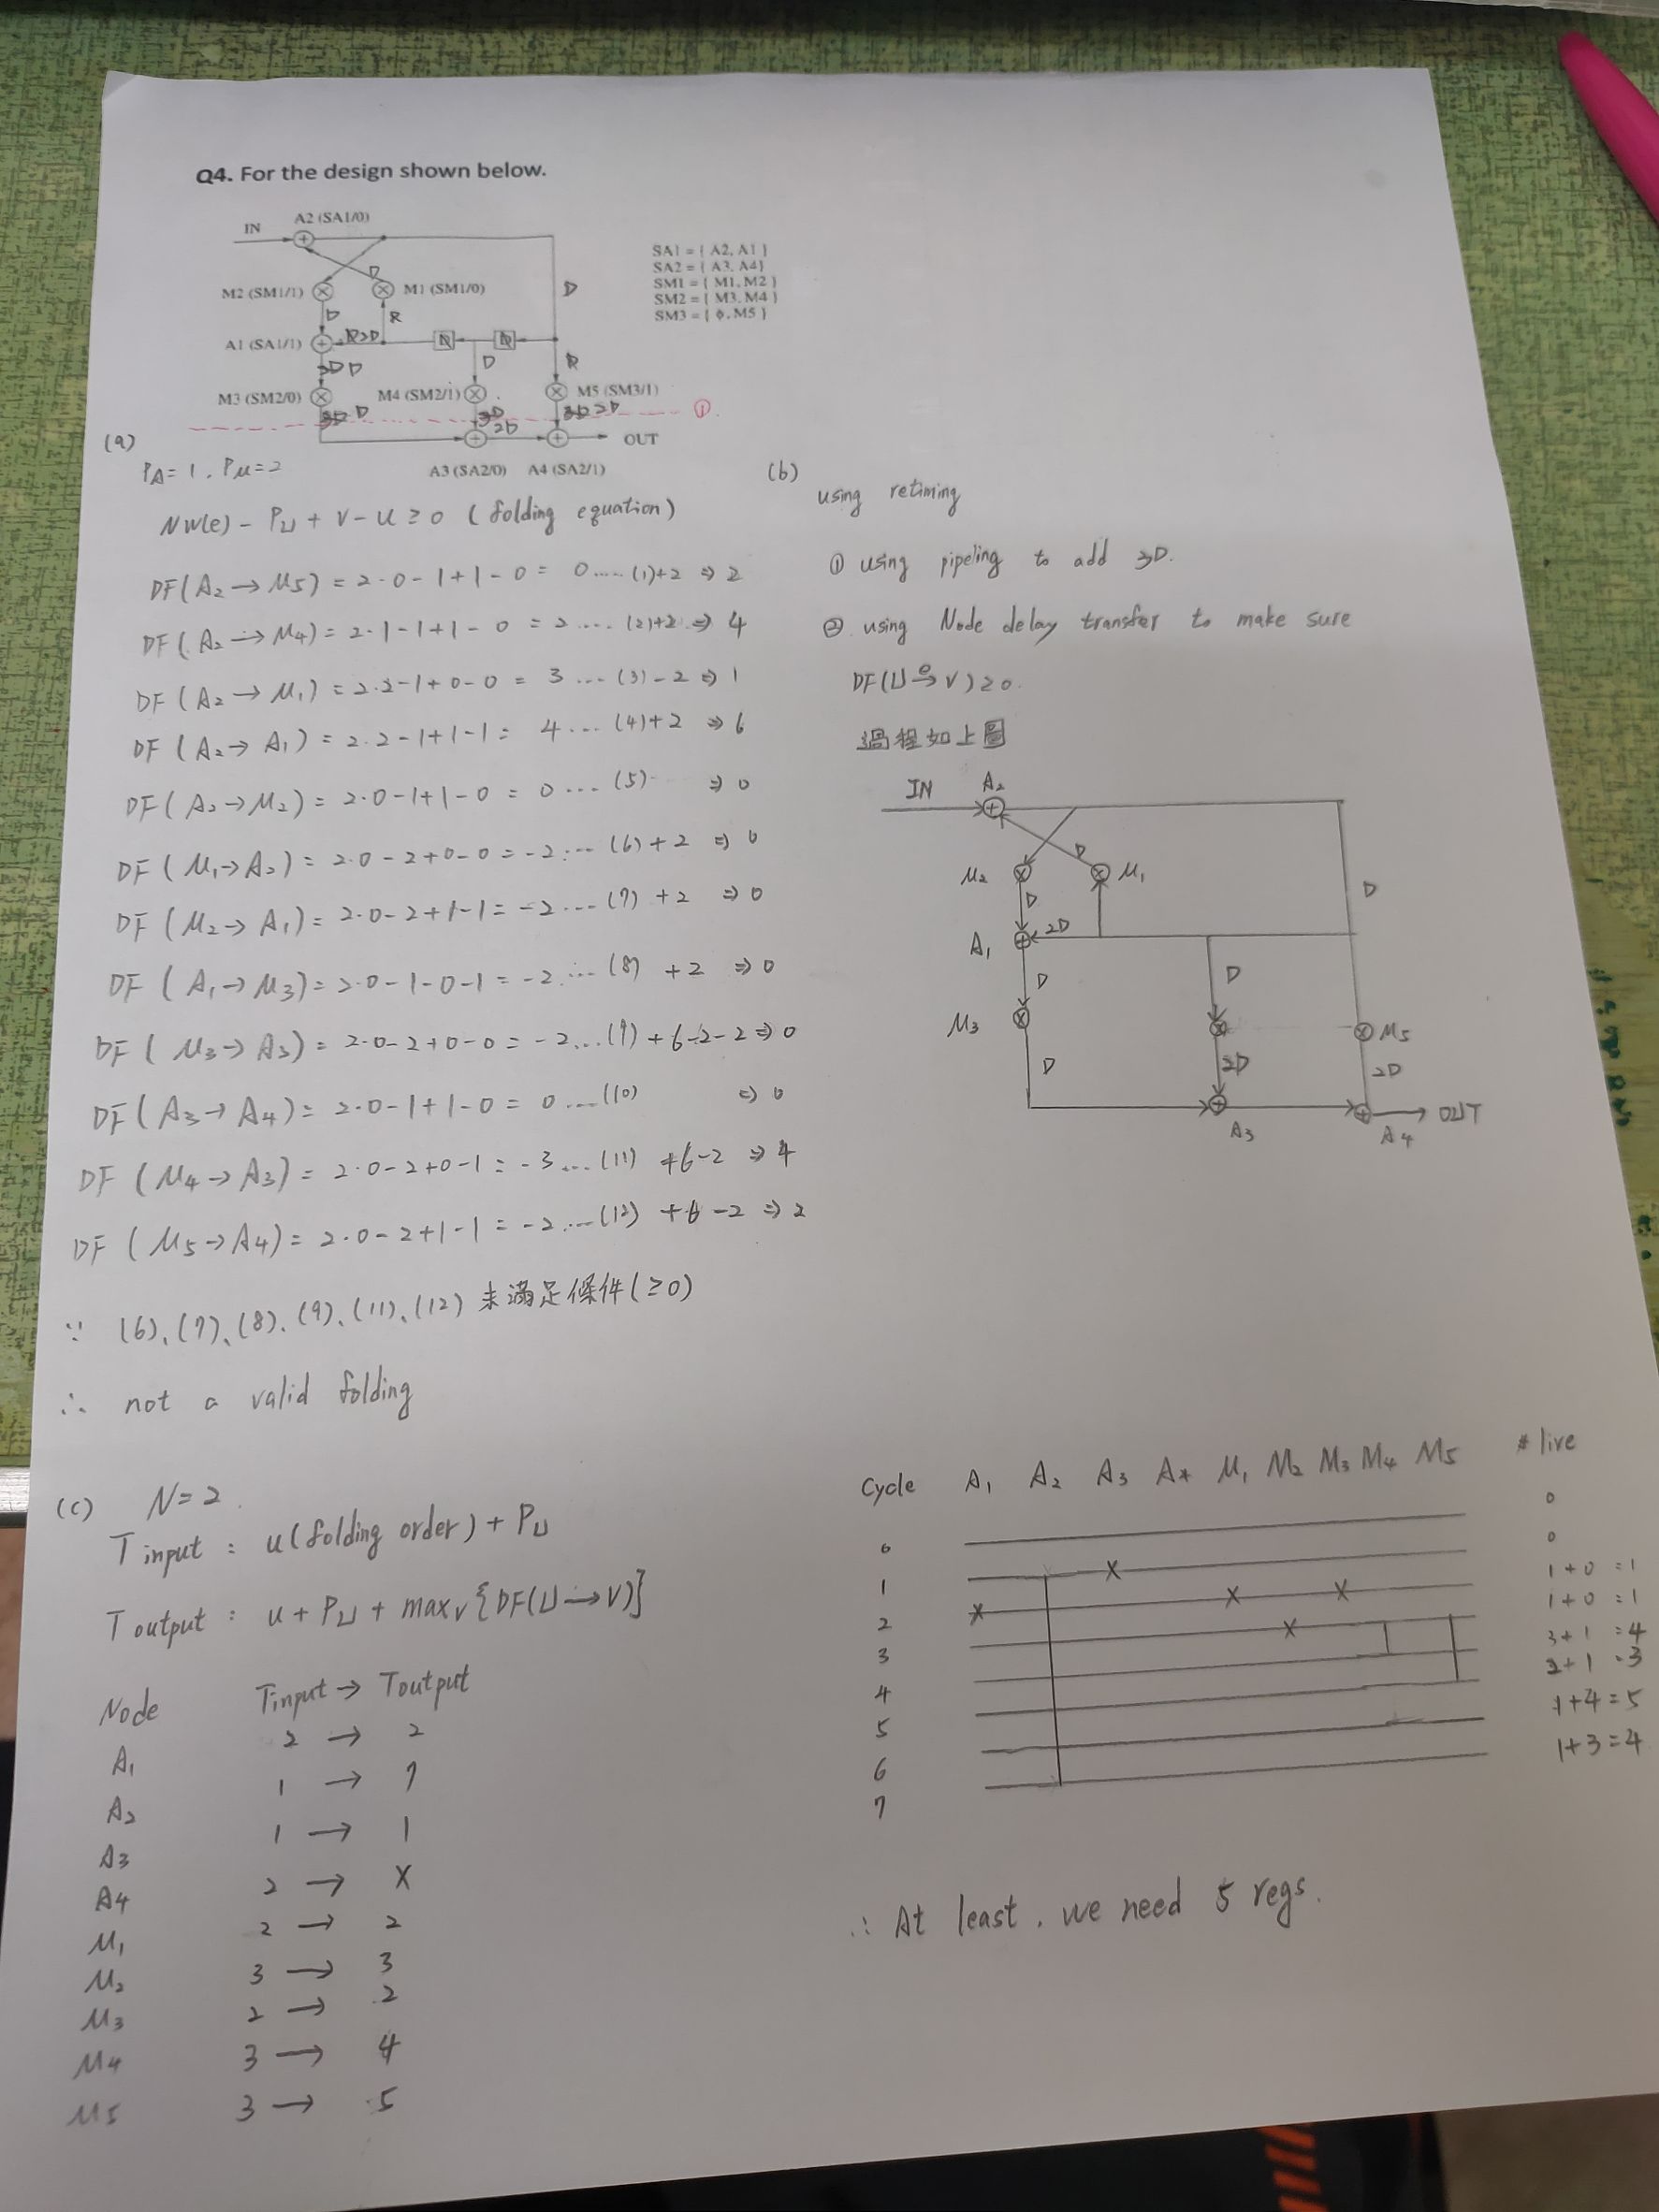 Q4. For the design shown below.
A2 (SA1/0)
IN
SA1 = { A2, A1 }
SA2 = { A3, A4}
SM1 = { M1, M2 }
SM2 = { M3, M4 }
SM3 = { ϕ, M5 }
D
M2 (SM1/1)
M1 (SM1/0)
D
D
A1 (SA1/1)
D
D
M3 (SM2/0)
M4 (SM2/1)
M5 (SM3/1)
①
2D
OUT
A3 (SA2/0) A4 (SA2/1)
(a)
PA = 1, PM = 2
NW(e) - PU + V - U ≥ 0 (folding equation)
DF(A2 → M5) = 2·0-1+1-0 = 0 .... (1)+2 ⇒ 2
DF(A2 → M4) = 2·1-1+1-0 = 2 .... (2)+2 ⇒ 4
DF(A2 → M1) = 2·2-1+0-0 = 3 ... (3)-2 ⇒ 1
DF(A2 → A1) = 2·2-1+1-1 = 4 ... (4)+2 ⇒ 6
DF(A2 → M2) = 2·0-1+1-0 = 0 ... (5) ⇒ 0
DF(M1 → A2) = 2·0-2+0-0 = -2 ... (6)+2 ⇒ 0
DF(M2 → A1) = 2·0-2+1-1 = -2 ... (7) +2 ⇒ 0
DF(A1 → M3) = 2·0-1-0-1 = -2 ... (8) +2 ⇒ 0
DF(M3 → A3) = 2·0-2+0-0 = -2 ... (9) +6-2-2 ⇒ 0
DF(A3 → A4) = 2·0-1+1-0 = 0 ... (10) ⇒ 0
DF(M4 → A3) = 2·0-2+0-1 = -3 ... (11) +6-2 ⇒ 4
DF(M5 → A4) = 2·0-2+1-1 = -2 ... (12) +6-2 ⇒ 2
∵ (6)、(7)、(8)、(9)、(11)、(12) 未滿足條件(≥0)
∴ not a valid folding
(b)
using retiming
① using pipeling to add 3D.
② using Node delay transfer to make sure
DF(U →e V) ≥ 0.
過程如上圖
IN A2
M2 D M1 D
D
A1 2D
D D
M3 M5
D 2D 2D
OUT
A3 A4
(c) N = 2
Tinput : u(folding order) + PU
Toutput : u + PU + maxv{DF(U → V)}
Node Tinput → Toutput
A1 2 → 2
A2 1 → 7
A3 1 → 1
A4 2 → X
M1 2 → 2
M2 3 → 3
M3 2 → 2
M4 3 → 4
M5 3 → 5
Cycle A1 A2 A3 A4 M1 M2 M3 M4 M5 # live
0 0
1 0
2 1+0 = 1
3 1+0 = 1
4 3+1 = 4
5 2+1 = 3
6 1+4 = 5
7 1+3 = 4
∴ At least, we need 5 regs.